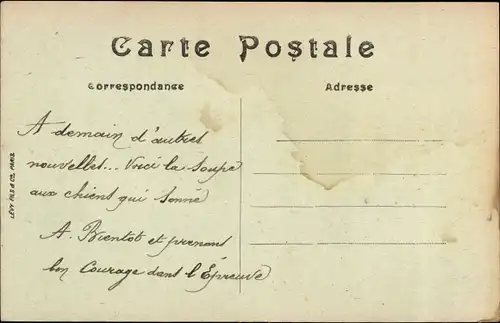 Carte Postale
Correspondance
Adresse
A demain d'autres
nouvelles... Voici la soupe
aux chiens qui sonne
A. Bientot et prenons
bon Courage dans l'Épreuve
LÉVY FILS & Co, PARIS